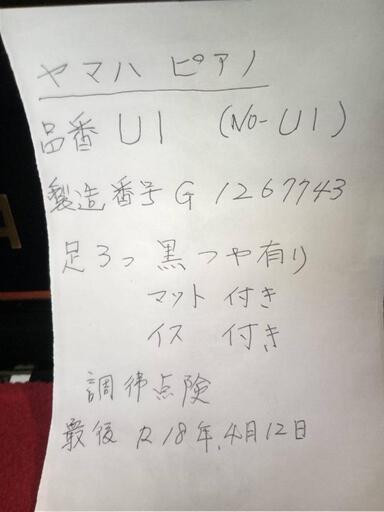 ヤマハ ピアノ
品番 U1 (No-U1)
製造番号 G 1267743
足3つ 黒つや有り
マット 付き
イス 付き
調律点険
最後 R18年.4月12日